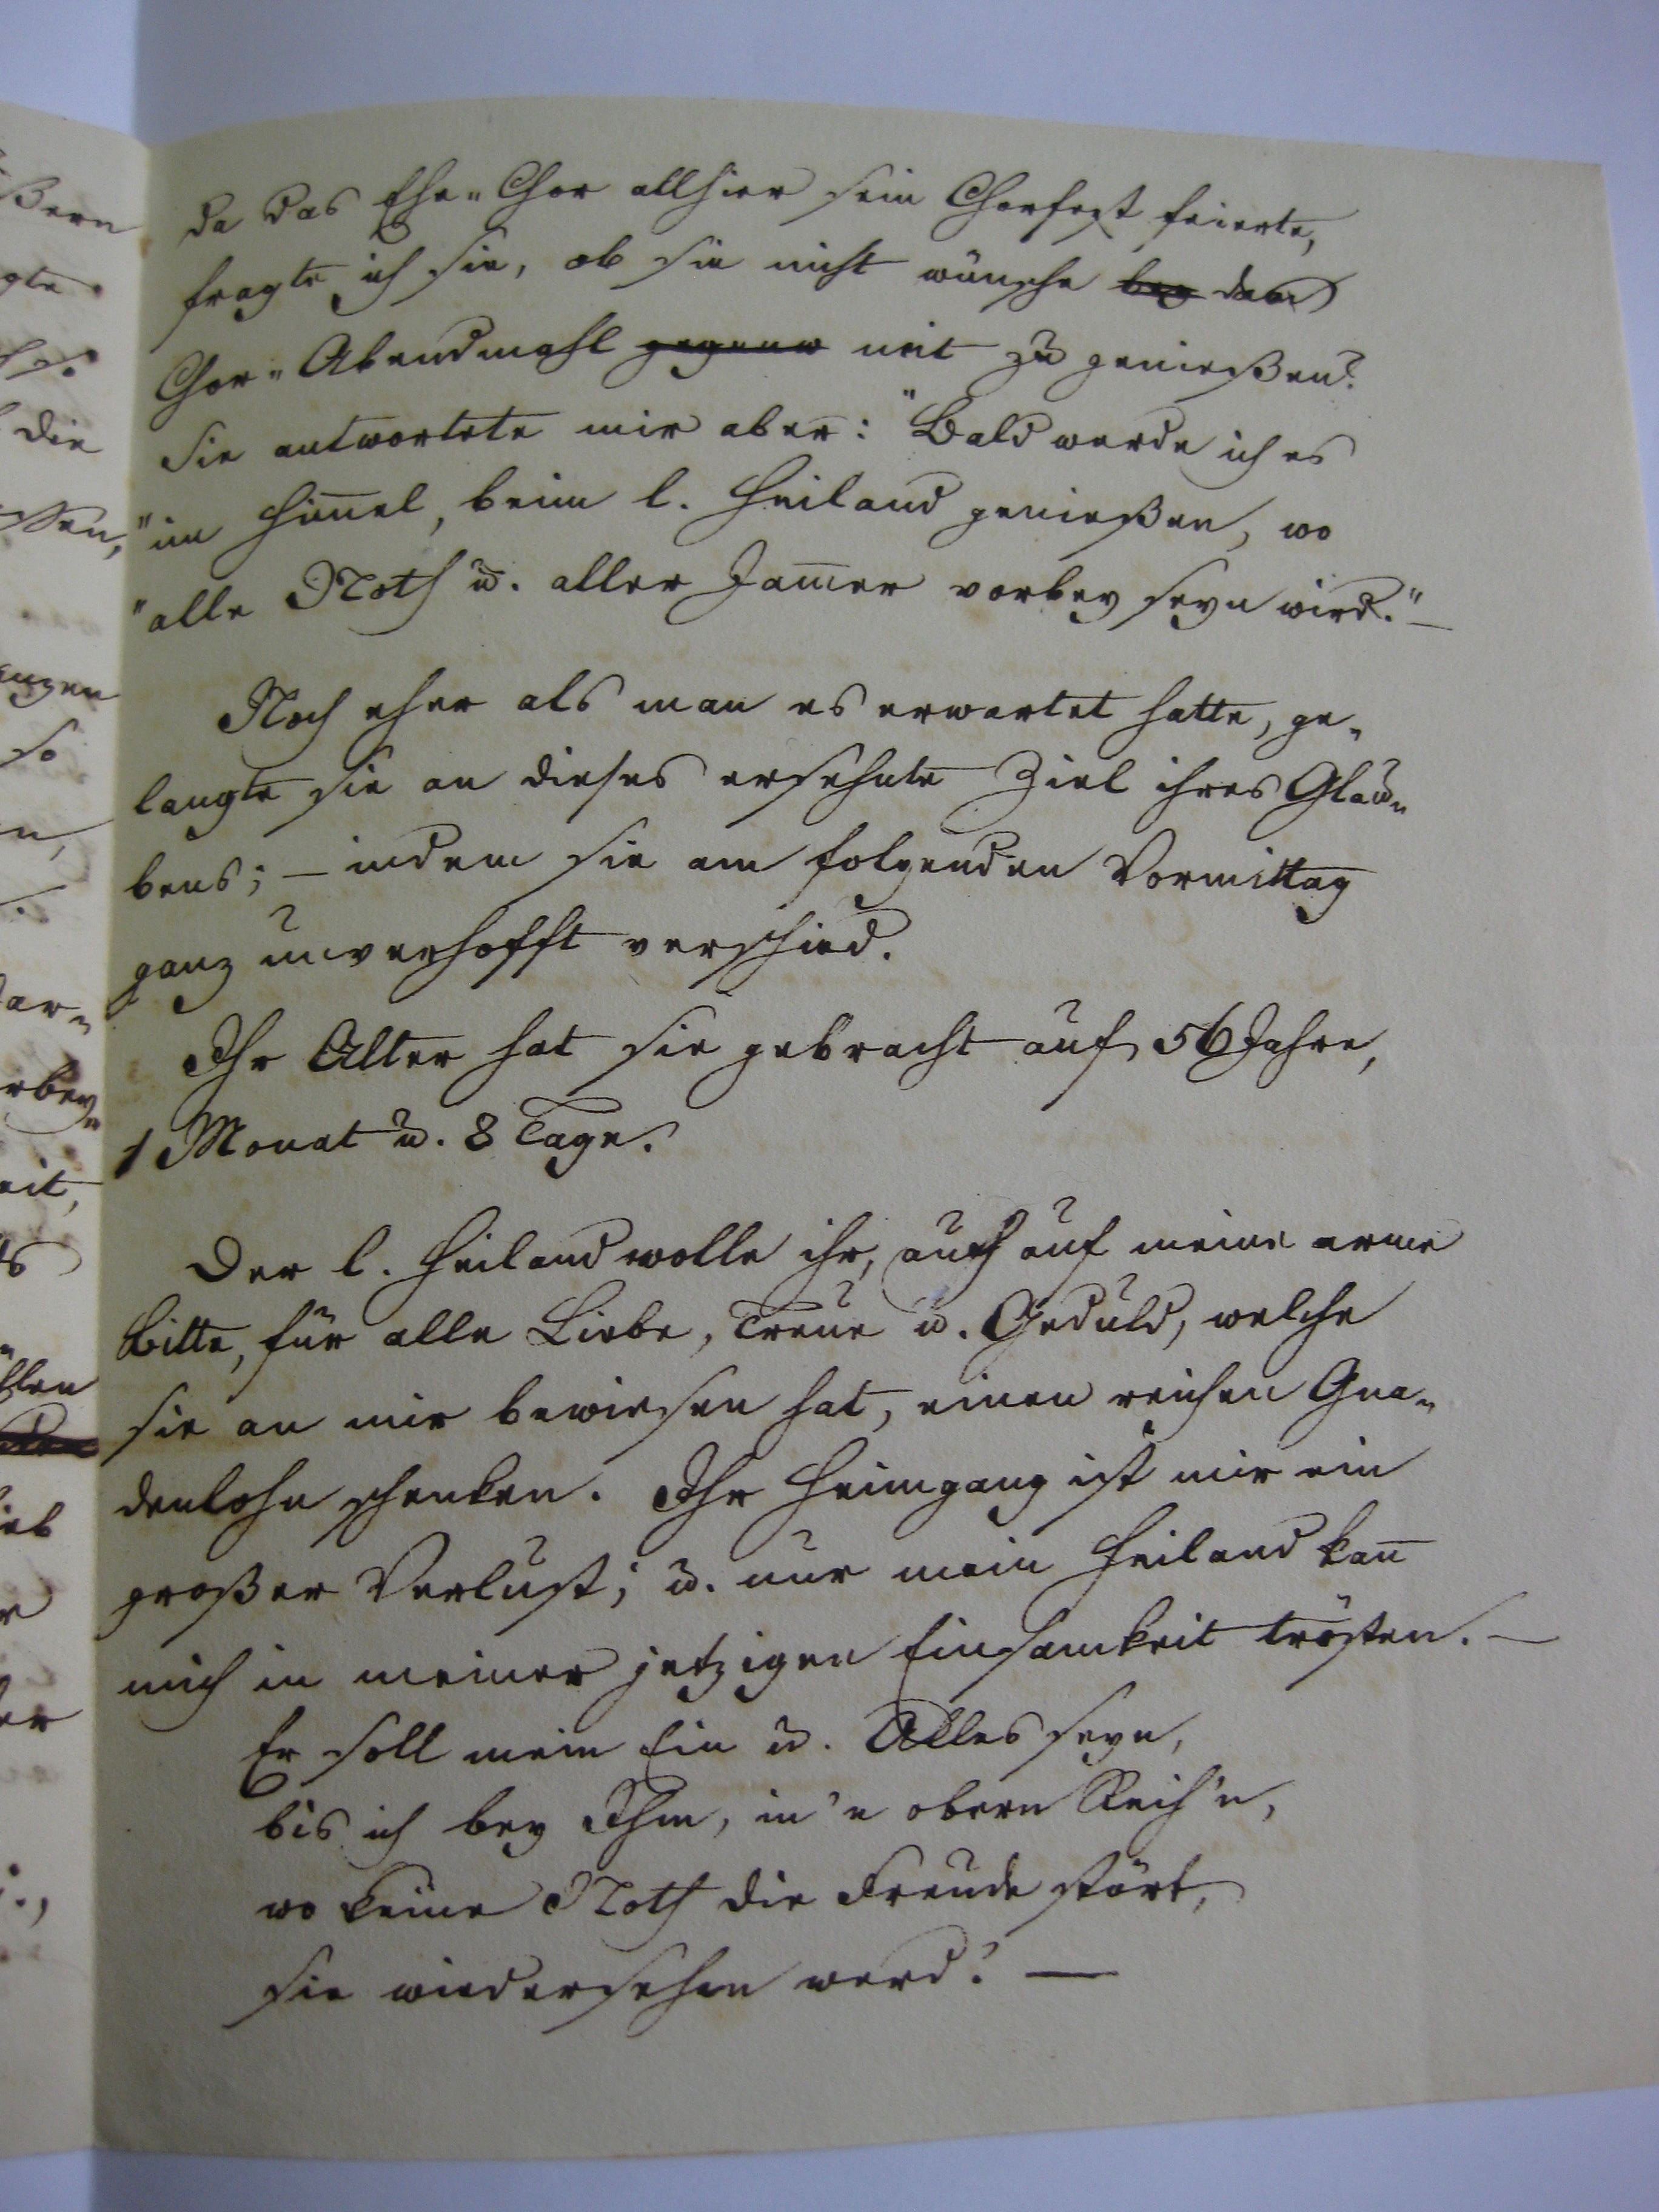 da das Ehe-Chor allhier sein Chorfest feierte,
fragte ich sie, ob sie nicht wünsche bey das
Chor-Abendmahl gegenw mit zu genießen?
Sie antwortete mir aber: "Bald werde ich es
"im Him̄el, beim l. Heiland genießen, wo
"alle Noth u. aller Jam̄er vorbey seyn wird." —
Noch eher als man es erwartet hatte, ge-
langte sie an dieses ersehnte Ziel ihres Glau-
bens; — indem sie am folgenden Vormittag
ganz unverhofft verschied.
Ihr Alter hat sie gebracht auf 56 Jahre,
1 Monat u. 8 Tage.
Der l. Heiland wolle ihr, auch auf meine arme
Bitte, für alle Liebe, Treue u. Geduld, welche
sie an mir bewiesen hat, einen reichen Gna-
denlohn schenken. Ihr Heimgang ist mir ein
großer Verlust; u. nur mein Heiland kan̄
mich in meiner jetzigen Einsamkeit trösten. —
Er soll mein Ein u. Alles seyn,
bis ich bey Ihm, in'n obern Reih'n,
wo keine Noth die Freude stört,
sie wiedersehen werd'! —